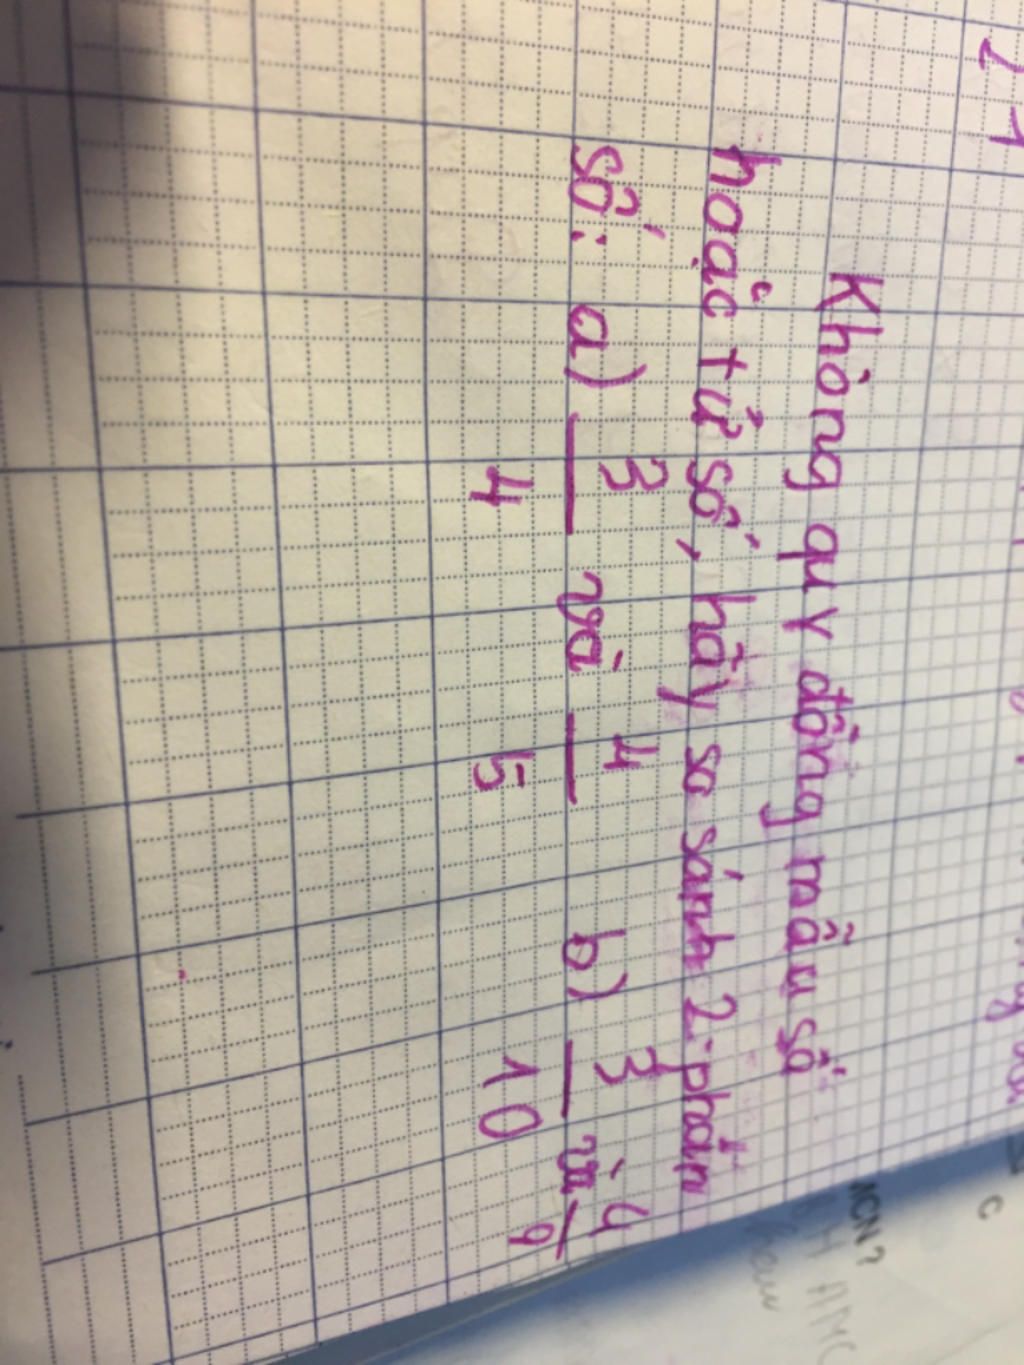 Không quy đồng mẫu số
hoặc tử số, hãy so sánh 2 phân
số: a) 3/4 và 4/5 b) 3/10 và 4/9
ICN?